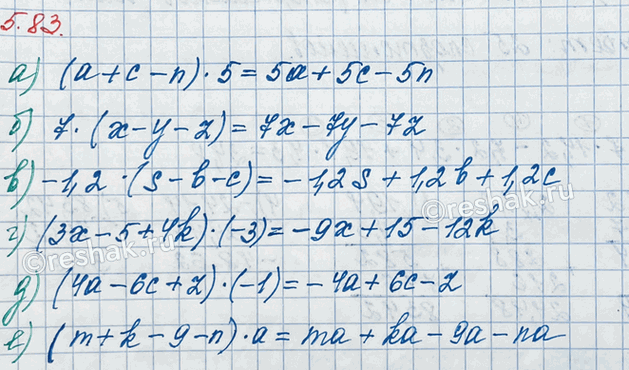 5.83.
а) (a+c-n)·5=5a+5c-5n
б) 7·(x-y-z)=7x-7y-7z
в) -1,2·(s-b-c)=-1,2s+1,2b+1,2c
г) (3x-5+4k)·(-3)=-9x+15-12k
д) (4a-6c+z)·(-1)=-4a+6c-z
е) (m+k-9-n)·a=ma+ka-9a-na
©reshak.ru
©reshak.ru